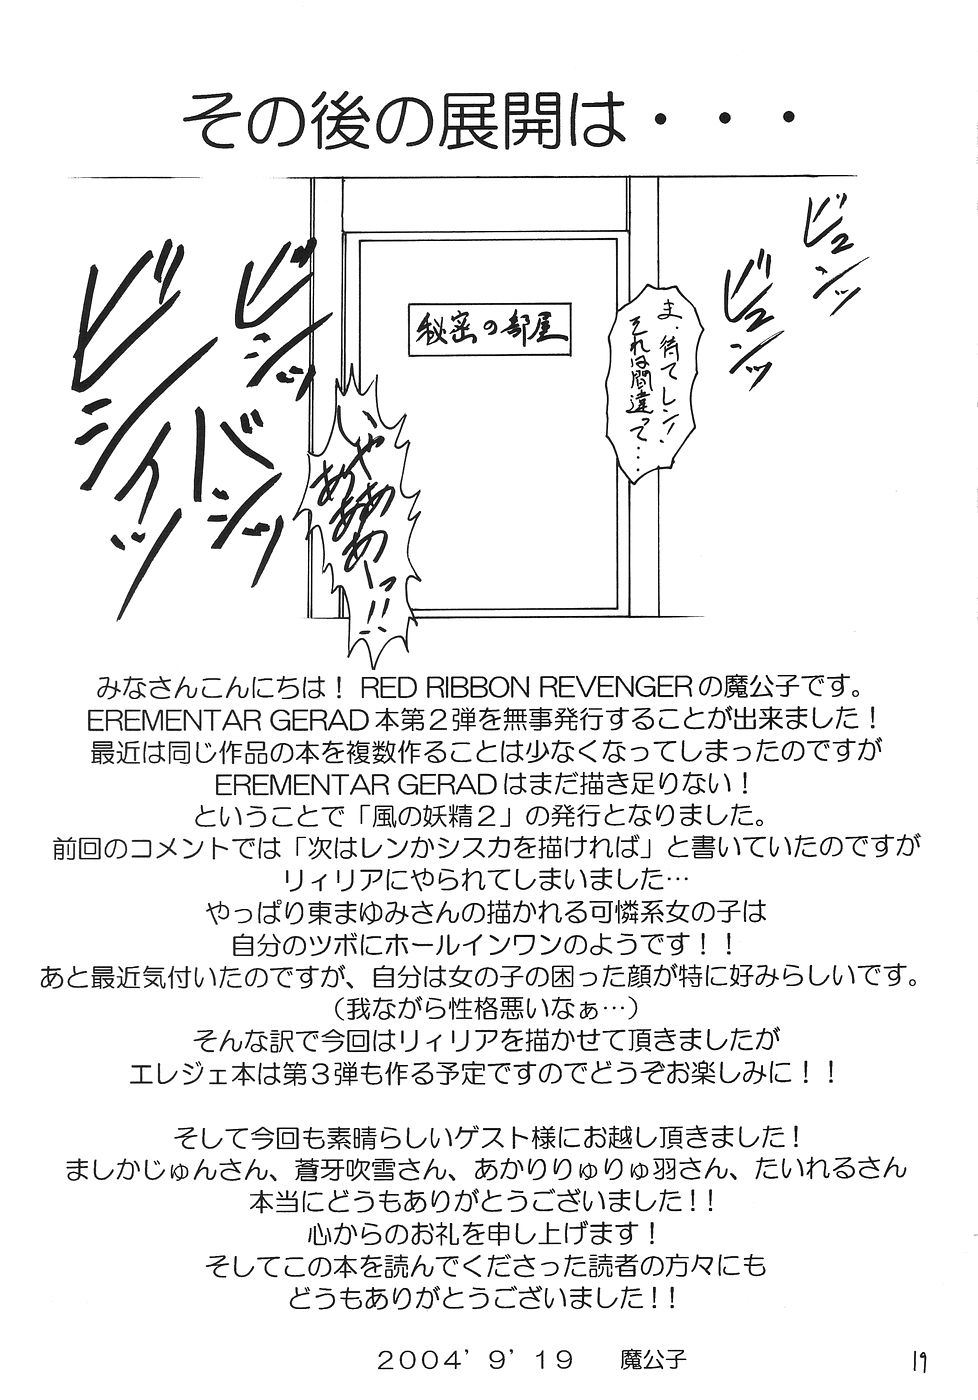 その後の展開は・・・
ビュンッ
ビュンッ
ま、待てレン！
それは間違って……
秘密の部屋
ビシッ
ビシィッ
バシッ
いやあぁ
あああーっ!!
みなさんこんにちは！ RED RIBBON REVENGERの魔公子です。
EREMENTAR GERAD本第２弾を無事発行することが出来ました！
最近は同じ作品の本を複数作ることは少なくなってしまったのですが
EREMENTAR GERADはまだ描き足りない！
ということで「風の妖精２」の発行となりました。
前回のコメントでは「次はレンかシスカを描ければ」と書いていたのですが
リィリアにやられてしまいました…
やっぱり東まゆみさんの描かれる可憐系女の子は
自分のツボにホールインワンのようです！！
あと最近気付いたのですが、自分は女の子の困った顔が特に好みらしいです。
（我ながら性格悪いなぁ…）
そんな訳で今回はリィリアを描かせて頂きましたが
エレジェ本は第３弾も作る予定ですのでどうぞお楽しみに！！
そして今回も素晴らしいゲスト様にお越し頂きました！
ましかじゅんさん、蒼牙吹雪さん、あかりりゅりゅ羽さん、たいれるさん
本当にどうもありがとうございました!!
心からのお礼を申し上げます！
そしてこの本を読んでくださった読者の方々にも
どうもありがとうございました!!
２００４’９’１９　魔公子
19